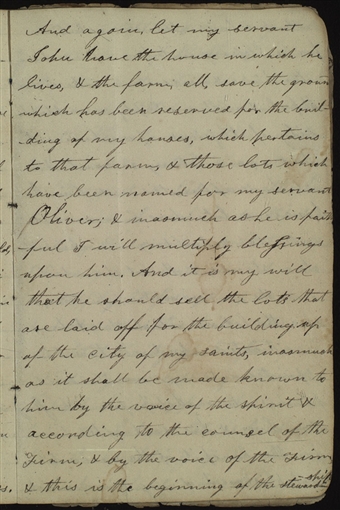 And again, let my servant
John have the house in which he
lives, & the farm, all, save the groun
which has been reserved for the buil-
ding of my houses, which pertains
to that farm, & those lots which
have been named for my servant
Oliver; & inasmuch as he is faith
ful I will multiply blessings
upon him. And it is my will
that he should sell the lots that
are laid off for the building up
of the city of my saints, inasmuch
as it shall be made known to
him by the voice of the spirit &
according to the counsel of the
Firm, & by the voice of the Firm
& this is the beginning of the steward
ship